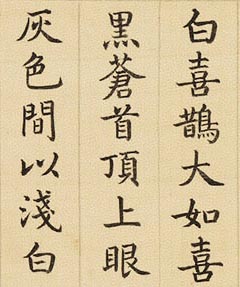 白喜鵲大如喜
黑蒼首頂上眼
灰色間以淺白